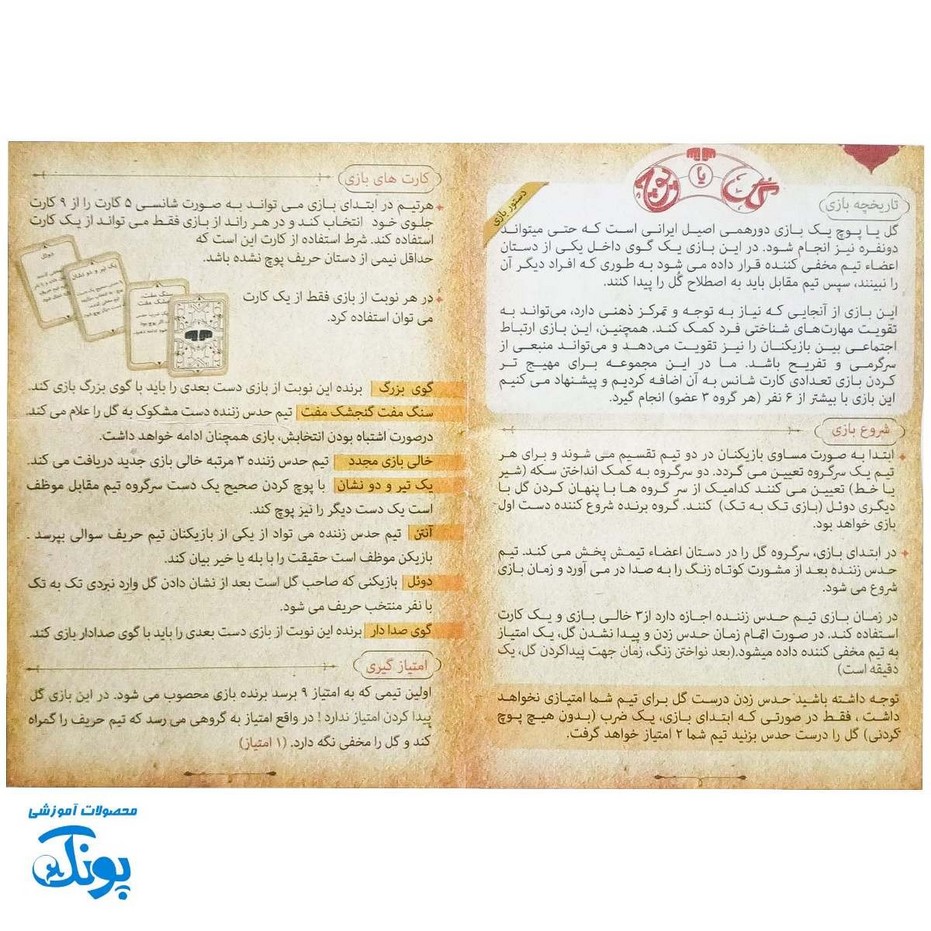 گل یا پوچ
دستور بازی
تاریخچه بازی
گل یا پوچ یک بازی دورهمی اصیل ایرانی است که حتی میتواند
دونفره نیز انجام شود. در این بازی یک گوی داخل یکی از دستان
اعضاء تیم مخفی کننده قرار داده می شود به طوری که افراد دیگر آن
را نبینند، سپس تیم مقابل باید به اصطلاح گُل را پیدا کنند.
این بازی از آنجایی که نیاز به توجه و تمرکز ذهنی دارد، می‌تواند به
تقویت مهارت‌های شناختی فرد کمک کند. همچنین، این بازی ارتباط
اجتماعی بین بازیکنان را نیز تقویت می‌دهد و می‌تواند منبعی از
سرگرمی و تفریح باشد. ما در این مجموعه برای مهیج تر
کردن بازی تعدادی کارت شانس به آن اضافه کردیم و پیشنهاد می کنیم
این بازی با بیشتر از ۶ نفر (هر گروه ۳ عضو) انجام گیرد.
شروع بازی
ابتدا به صورت مساوی بازیکنان در دو تیم تقسیم می شوند و برای هر
تیم یک سرگروه تعیین می گردد. دو سرگروه به کمک انداختن سکه (شیر
یا خط) تعیین می کنند کدامیک از سر گروه ها با پنهان کردن گل با
دیگری دوئل (بازی تک به تک) کنند. گروه برنده شروع کننده دست اول
بازی خواهد بود.
در ابتدای بازی، سرگروه گل را در دستان اعضاء تیمش پخش می کند. تیم
حدس زننده بعد از مشورت کوتاه زنگ را به صدا در می آورد و زمان بازی
شروع می شود.
در زمان بازی تیم حدس زننده اجازه دارد از۳ خالی بازی و یک کارت
استفاده کند. در صورت اتمام زمان حدس زدن و پیدا نشدن گل، یک امتیاز
به تیم مخفی کننده داده میشود.(بعد نواختن زنگ، زمان جهت پیداکردن گل، یک
دقیقه است)
توجه داشته باشید: حدس زدن درست گل برای تیم شما امتیازی نخواهد
داشت ، فقط در صورتی که ابتدای بازی، یک ضرب (بدون هیچ پوچ
کردنی) گل را درست حدس بزنید تیم شما ۲ امتیاز خواهد گرفت.
کارت های بازی
هرتیم در ابتدای بازی می تواند به صورت شانسی ۵ کارت را از ۹ کارت
جلوی خود انتخاب کند و در هر راند از بازی فقط می تواند از یک کارت
استفاده کند. شرط استفاده از کارت این است که
حداقل نیمی از دستان حریف پوچ نشده باشد.
در هر نوبت از بازی فقط از یک کارت
می توان استفاده کرد.
دوئل
یک تیر و دو نشان
سنگ مفت
گنجشک مفت
گوی بزرگ برنده این نوبت از بازی دست بعدی را باید با گوی بزرگ بازی کند.
سنگ مفت گنجشک مفت تیم حدس زننده دست مشکوک به گل را اعلام می کند.
درصورت اشتباه بودن انتخابش، بازی همچنان ادامه خواهد داشت.
خالی بازی مجدد تیم حدس زننده ۳ مرتبه خالی بازی جدید دریافت می کند.
یک تیر و دو نشان با پوچ کردن صحیح یک دست سرگروه تیم مقابل موظف
است یک دست دیگر را نیز پوچ کند.
آنتن تیم حدس زننده می تواد از یکی از بازیکنان تیم حریف سوالی بپرسد .
بازیکن موظف است حقیقت را با بله یا خیر بیان کند.
دوئل بازیکنی که صاحب گل است بعد از نشان دادن گل وارد نبردی تک به تک
با نفر منتخب حریف می شود.
گوی صدا دار برنده این نوبت از بازی دست بعدی را باید با گوی صدادار بازی کند.
امتیاز گیری
اولین تیمی که به امتیاز ۹ برسد برنده بازی محصوب می شود. در این بازی گل
پیدا کردن امتیاز ندارد ! در واقع امتیاز به گروهی می رسد که تیم حریف را گمراه
کند و گل را مخفی نگه دارد. (۱ امتیاز)
محصولات آموزشی
پونک